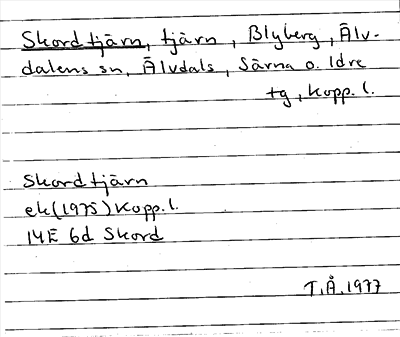 Skordtjärn, tjärn, Blyberg, Älv-
dalens sn, Älvdals, Särna o. Idre
tg, Kopp. l.
Skordtjärn
ek (1975) Kopp. l.
14E 6d Skord
T.Å. 1977